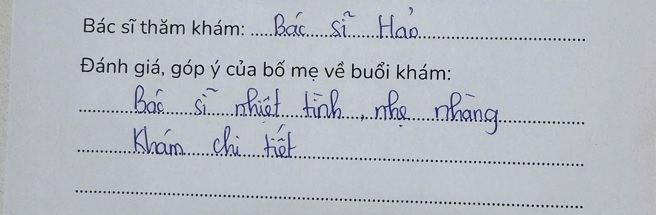 Bác sĩ thăm khám: Bác sĩ Hảo
Đánh giá, góp ý của bố mẹ về buổi khám:
Bác sĩ nhiệt tình, nhẹ nhàng
Khám chi tiết